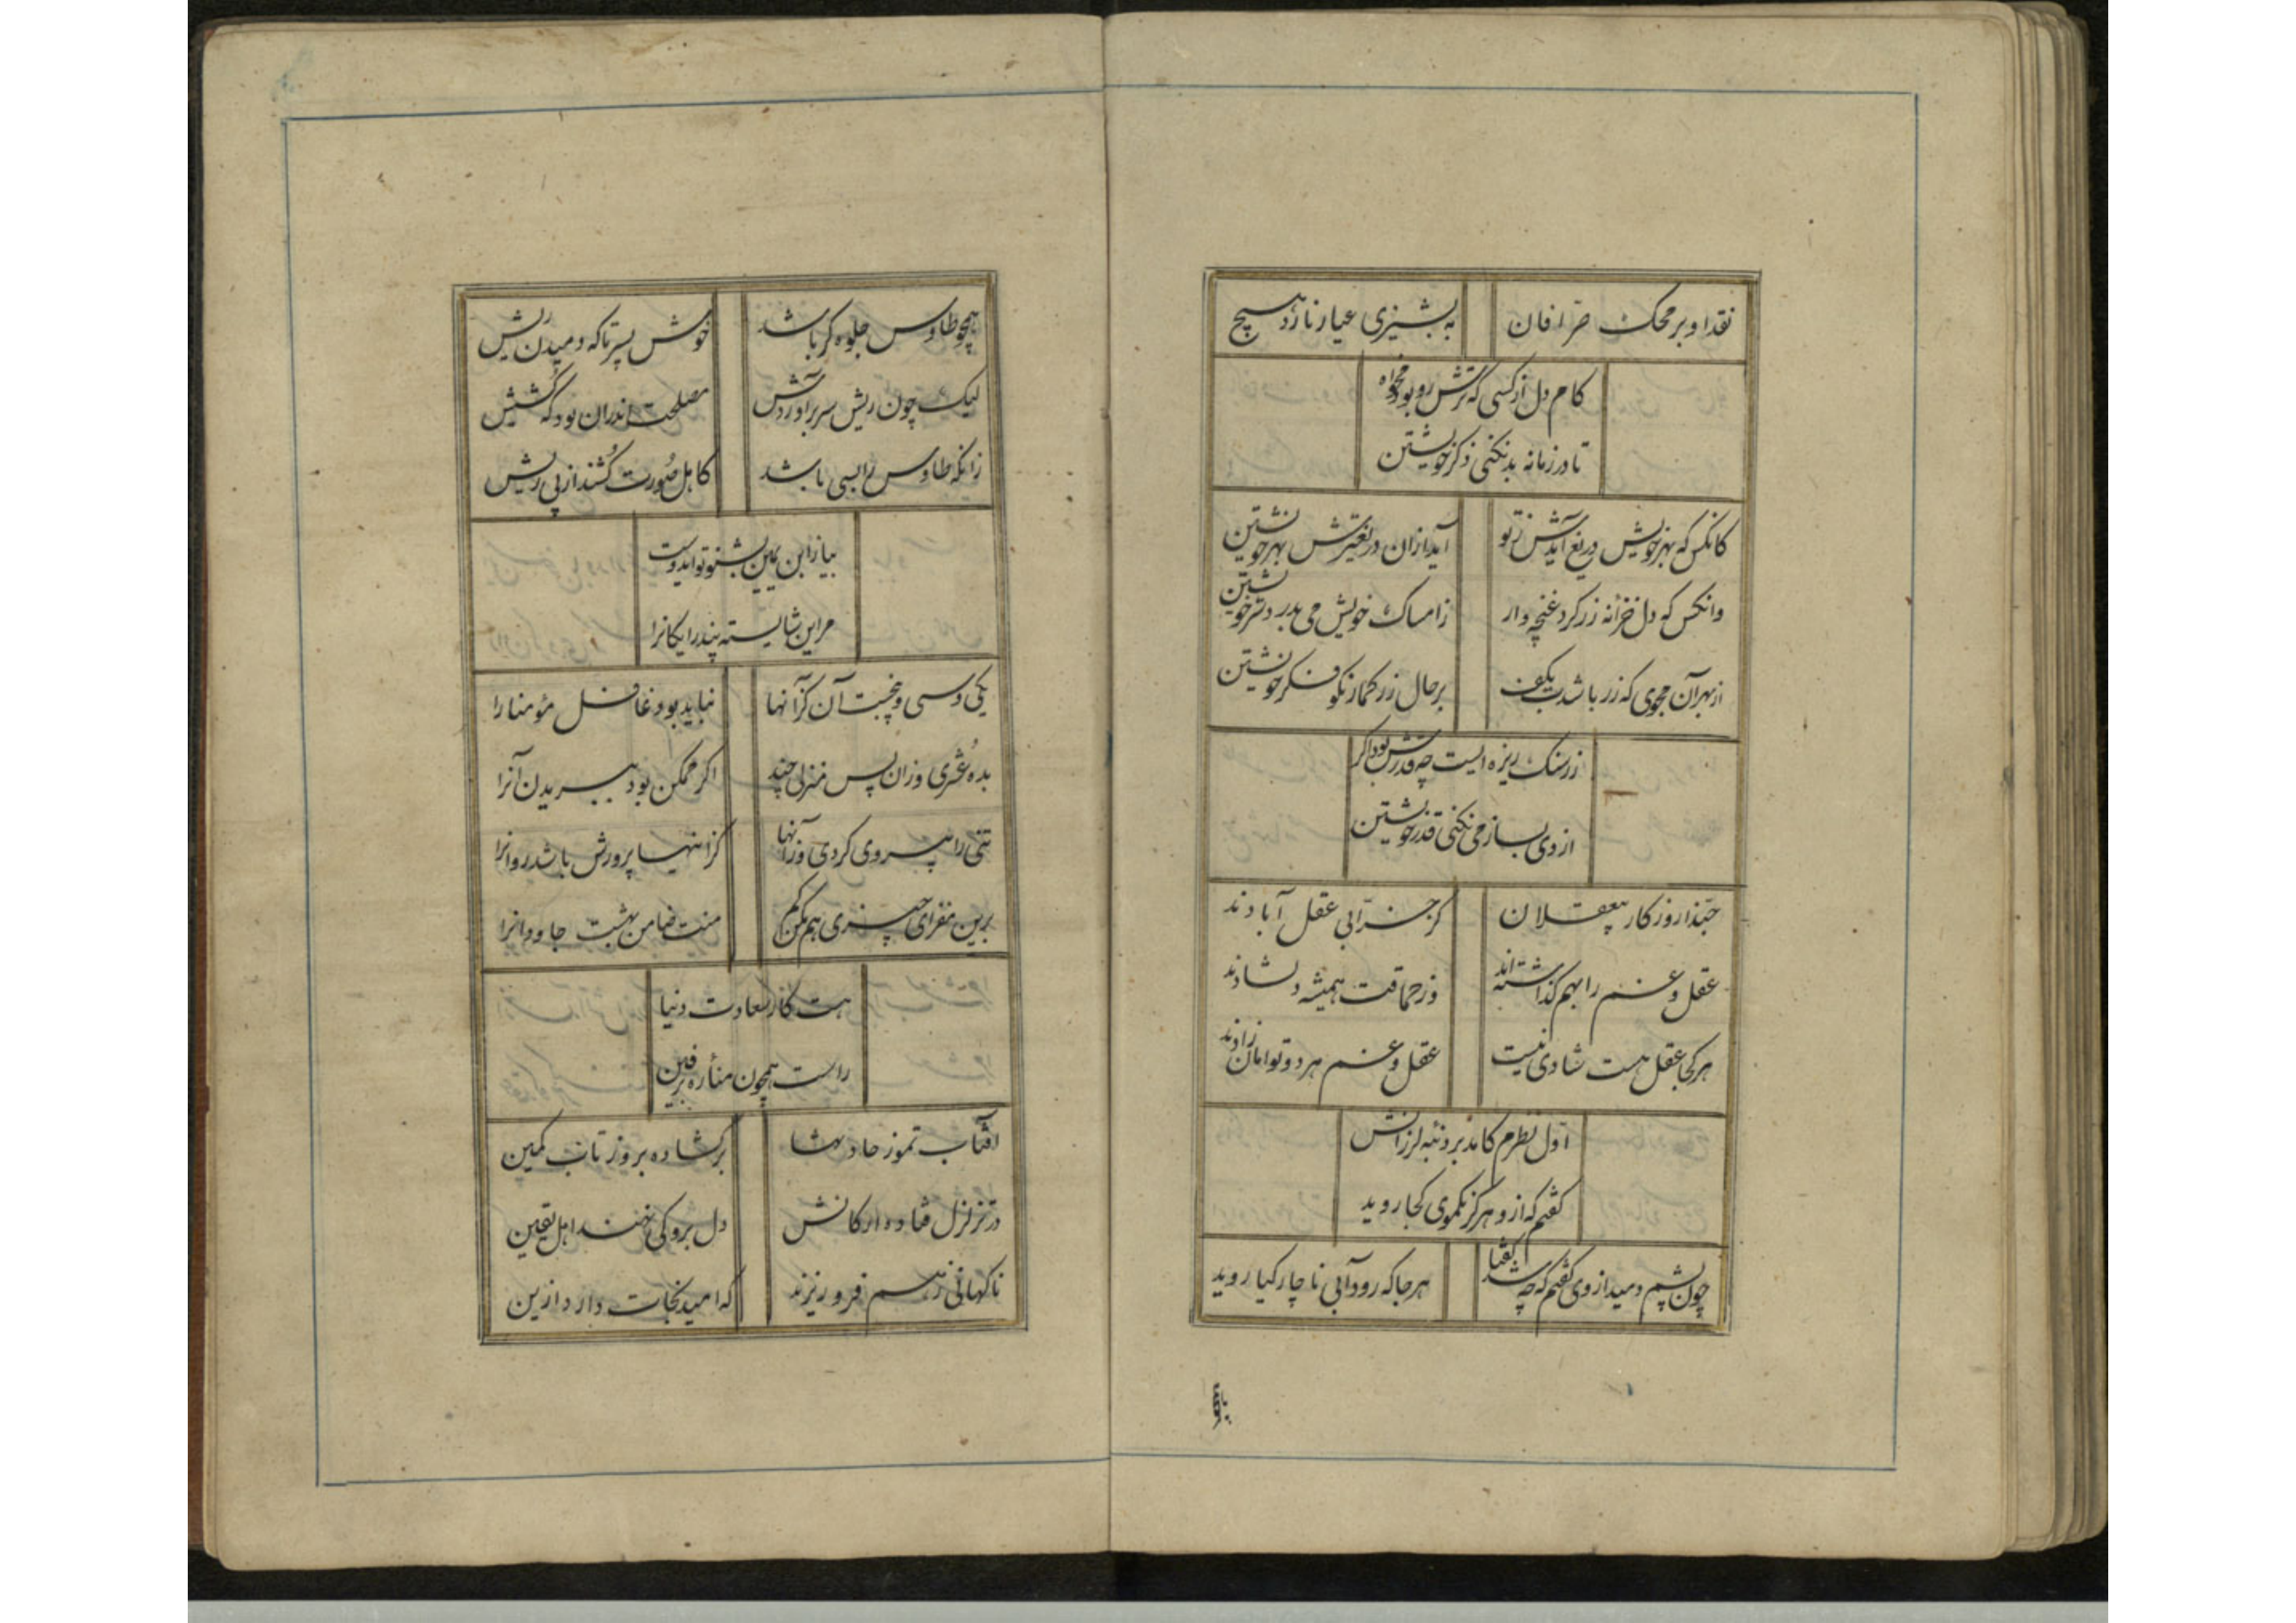 نقد او بر محک صرافان به پشیزی عیار نارد هیچ
کام دل از کسی که ترش رو بود مخواه
تا در زمانه بد نکنی ذکر خویشتن
کانکس که بهر خویش دریغ آیدش ز تو آید ازان دریغترش بهر خویشتن
وانکس که دل خزانه زر کرد غنچه وار ز امساک خویش می بدرد ستر خویشتن
از بهر آن مجوی که زر باشدت بکف بر حال زر کمار نکو فکر خویشتن
زر سنک ریزه ایست چه قدرش بود اکر
از وی بساز می نکنی قدر خویشتن
حبّذا روزکار بیعقلان کز خرابی عقل آبادند
عقل و غم را بهم کذاشته اند وز حماقت همیشه دلشادند
هر کجا عقل هست شادی نیست عقل و غم هر دو توامان زادند
اول نظرم کامد بر دنبه لرزانش
کفتم که ازو هرکز نکموی کجا روید
چون پشم دمید از وی کفتم که چه شد کفتا هر جا که رود آبی ناچار کیا روید
همچو
همچو طاوس جلوه کر باشد خوش پسر تا که دمیدن ریش
لیک چون ریش سر برآوردش مصلحت اندران بود که کشیش
زانکه طاوس را بسی باشد کاهل صورت کُشند از پی ریش
بیا ز ابن یمین بشنو تو ایدوست
مر این شایسته پند رایکانرا
یکی و سی و پنجست آن کز آنها نباید بود غافل مؤمنا را
بده عُشری وزان پس منزلی چند اکر ممکن بود ببریدن آنرا
تنی را پیروی کردی وزآنها کز انتها پرورش باشد روانرا
برین مفزای چیزی هم مکن کم منت ضامن بهشت جاودانرا
هست کار سعادت دنیا
راست همچون مناره برفین
افتاب تموز حادثها برکشاده بروز تاب کمین
در تزلزل فتاده ارکانش دل برو کی نهند اهل یقین
ناکهانی ز هم فرو ریزند که امید نجات دارد ازین